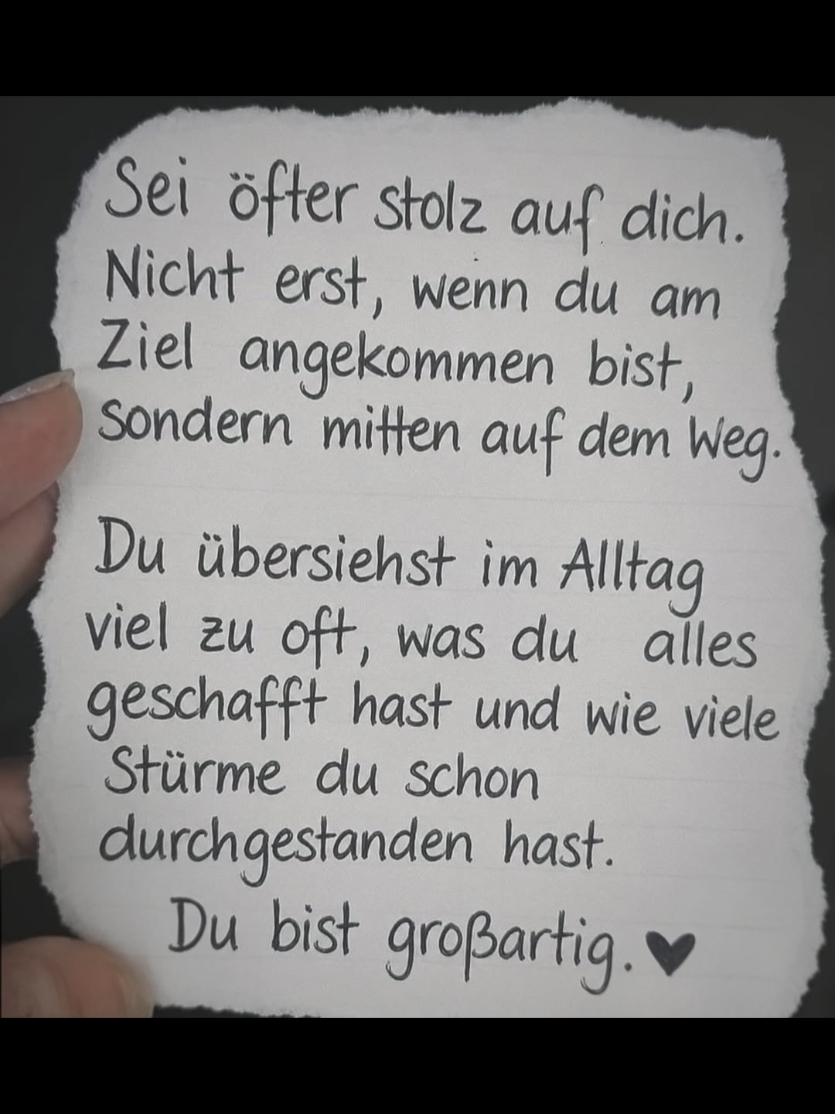 Sei öfter stolz auf dich.
Nicht erst, wenn du am
Ziel angekommen bist,
sondern mitten auf dem Weg.
Du übersiehst im Alltag
viel zu oft, was du alles
geschafft hast und wie viele
Stürme du schon
durchgestanden hast.
Du bist großartig. ♥